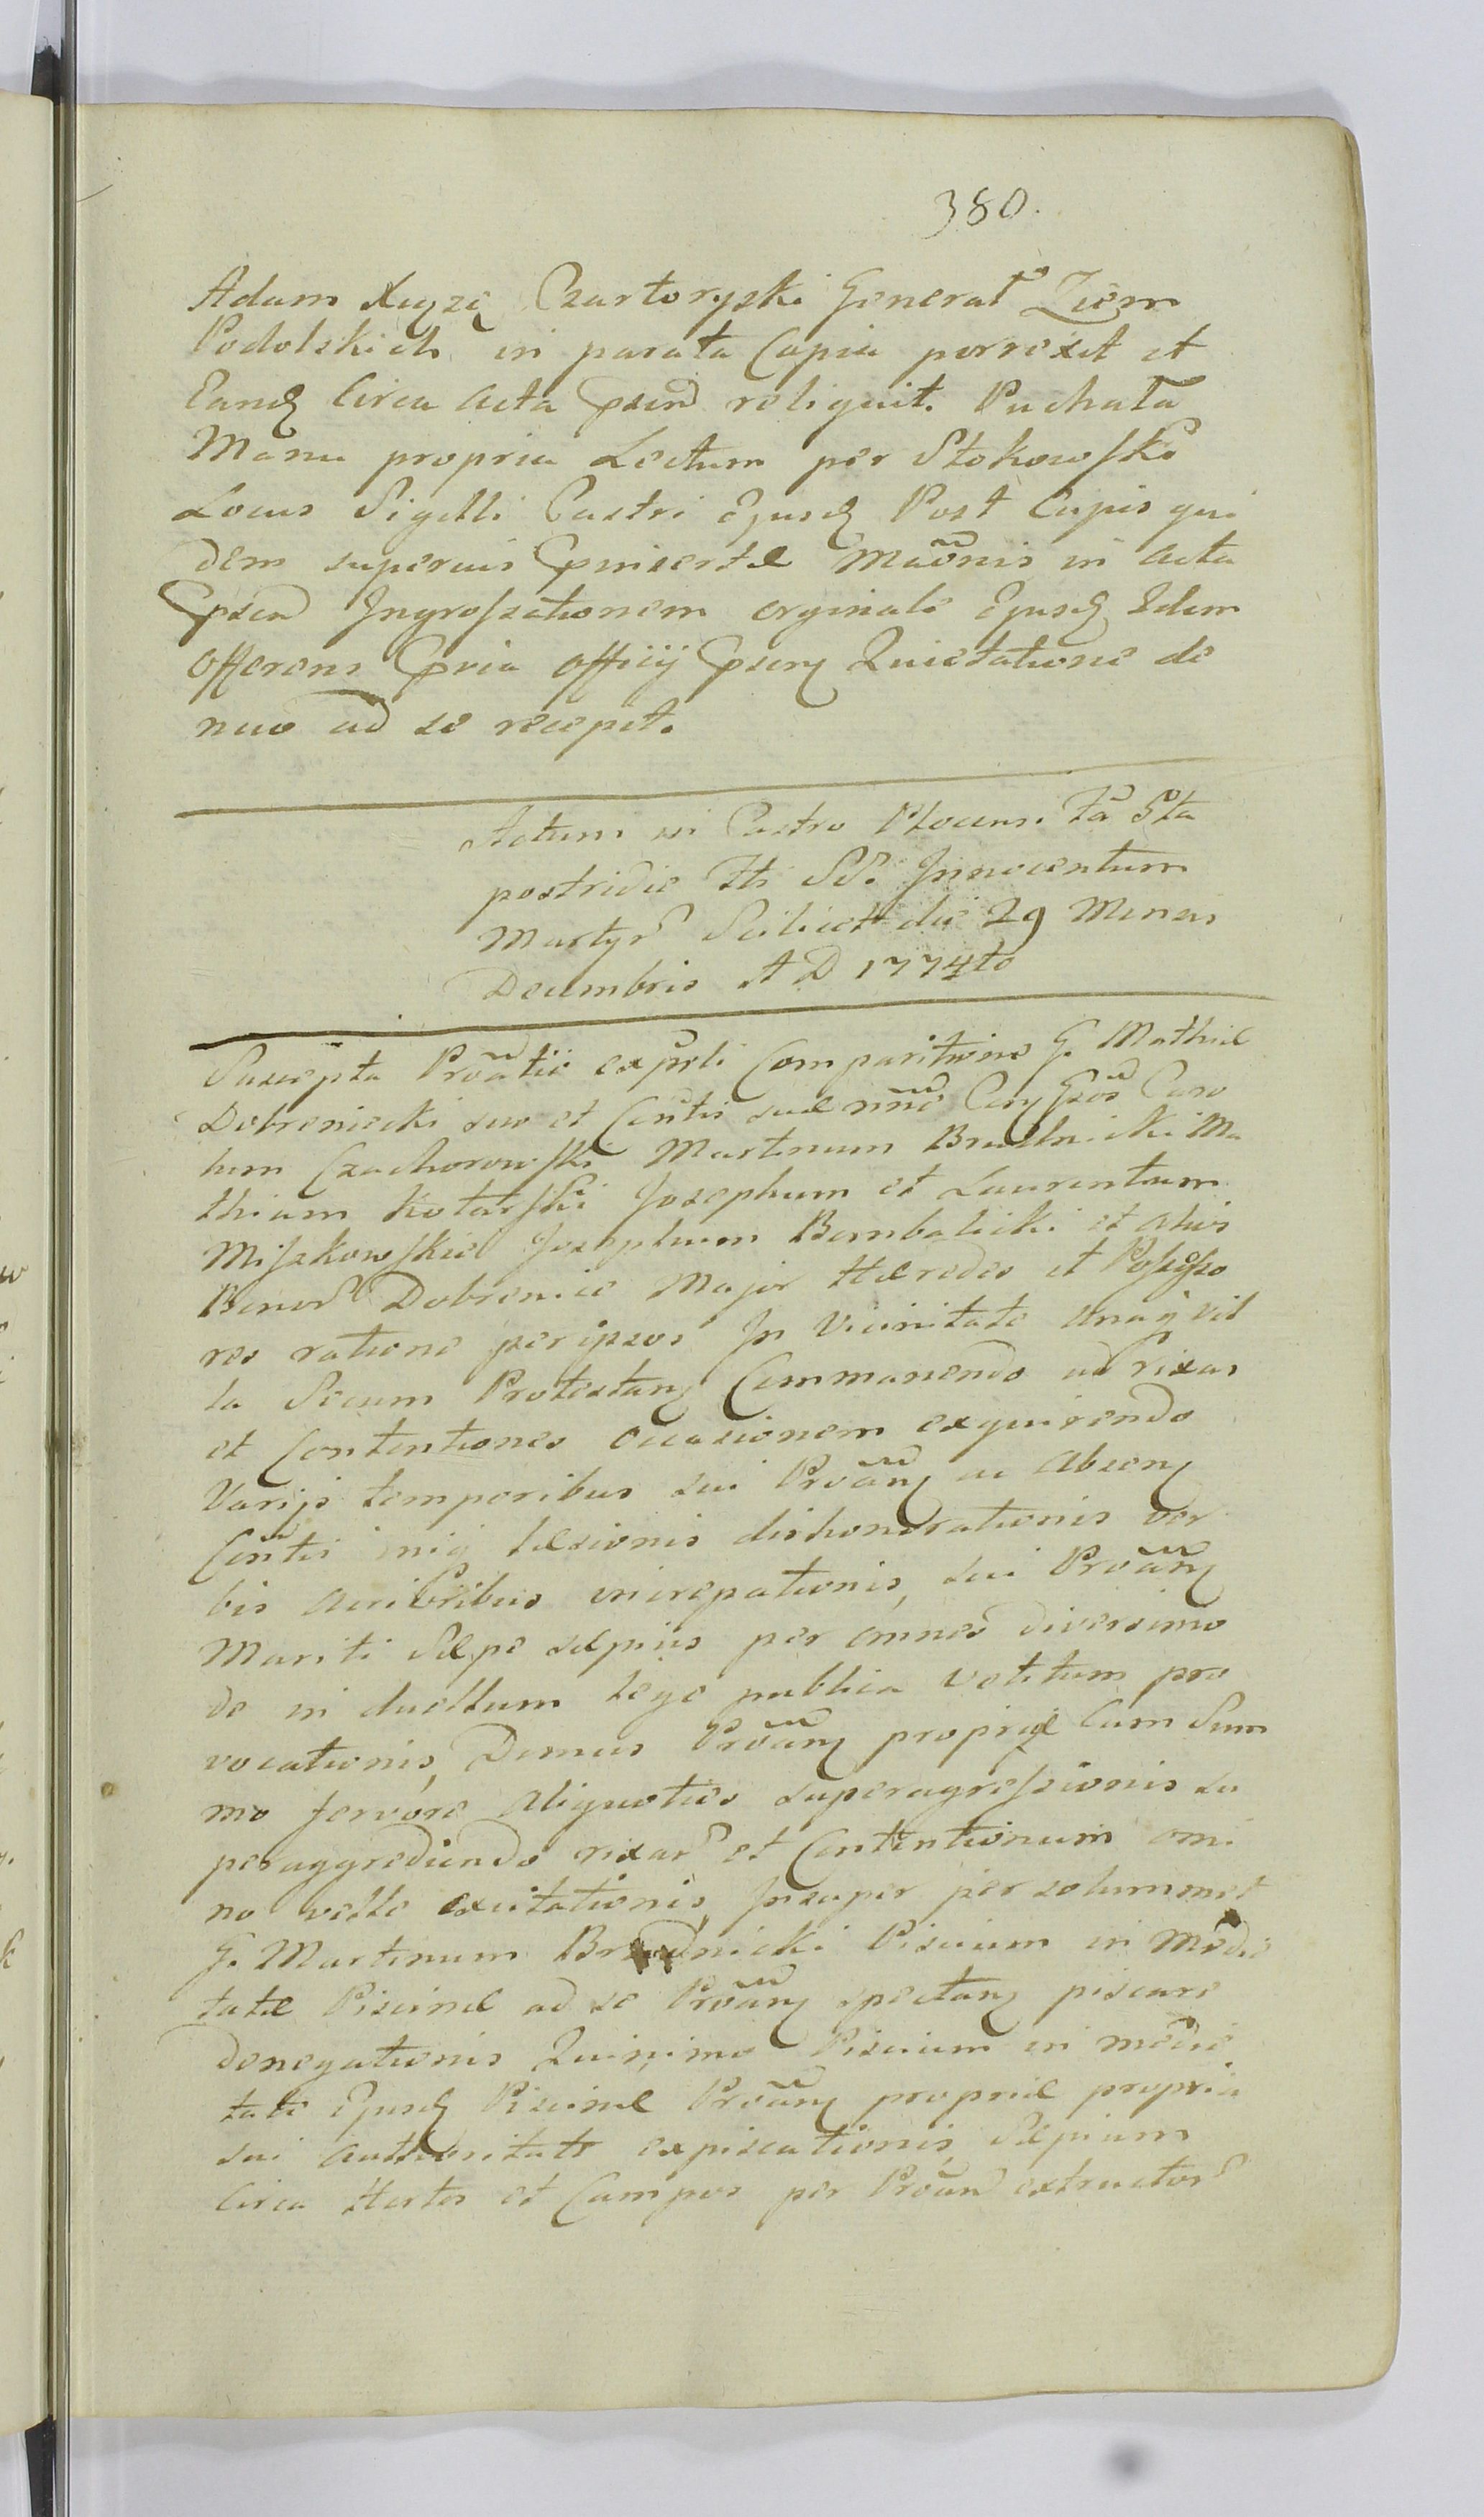 380.
Adam Xiązę Czartoryski Generał Ziem
Podolskich in parata Copia porrexit et
Eandꝫ Circa Acta pnsñ reliquit. Puchała
Manu propria Lectum per Stokowski
Locus Sigilli Castri Ejusdꝫ Post Cujus qui
dem superius insertæ Mãonis in Acta
Ingrossationem orginale Ejusdꝫ Idem
Offerens officij Quietatione de
nuo ad se recepit.
Actum in Castro Plocensi Fã 5ta
postridie Fti SS. Innocentium
Martyr Scilicet die 29 Mensis
Decembris A D 1774to
Suscepta Prõatie Comparitione G. Mathiæ
Dobreniecki suo et Contis suæ nñe Caro
lum Czachorowski Martinum Brudnicki Ma
thiam Kotarski Josephum et Laurentium
Miszkowskie Josephum Bembalicki et alios
Bonor Dobrenice Major Hæredes et Possesso
res ratione per ipsos In Vicinitate unaq vil
la Secum Protestanꝫ Commanendo ad rixas
et Contentiones occasionem exquirendo
Varijs temporibus sui Prõanꝫ ac Absenꝫ
Contis læsionis dishonorationis ver
bis acrioribus increpationis, sui Prõanꝫ
Mariti Sæpe sæpius per omnes diversimo
de in duellum lege publica vetitum pro
vocationis, Domus Prõanꝫ propriæ Cum Sum
mo fervore aliquoties superagressionis su
peraggrediendo rixar et Contentionum omi
no velle excitationis, Insuper per solummet
G. Martinum Brudnicki Piscium in Medie
tate Piscinæ ad se Prõanꝫ spectanꝫ piscare
denegationis Quinimo Piscium in medie
tate Ejusdꝫ Piscinæ Prõanꝫ propriæ propria
sui authoritate expiscationis, Sæpium
Circa Hortos et Campos per Prõan extructor